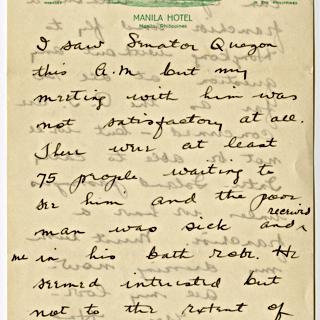 MANILA HOTEL
Manila, Philippines
I saw Senator Quezon
this A.M. but my
meeting with him was
not satisfactory at all.
There were at least
75 people waiting to
see him and the poor
man was sick and received
me in his bath robe. He
seemed interested but
not to the extent of